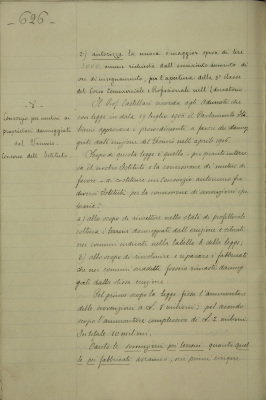 -626-
2) autorizza la unica maggior spesa di lire
2000, annue richiesta dall'aumento di
ore di insegnamento, per l'apertura della 3ª classe
del Corso Commerciale e Professionale nell'Educatorio
-8-
Consorzio per mutui ai
proprietari danneggiati
dal Vesuvio.
Concorso dell'Istituto.
Il Prof. Castellani ricorda agli Adunati che
con legge in data 19 luglio 1906 il Parlamento Ita-
liano approvava provvedimenti a favore dei danneg-
giati dall'eruzione del Vesuvio nell'aprile 1906.
Scopo di questa legge è quello, per quanto interes-
sa il nostro Istituto la concessione di mutui di
favore e di costituire un Consorzio autonomo fra
diversi Istituti per la concessione di sovvenzioni ipo-
tecarie:
a) allo scopo di rimettere nello stato di profittevole
coltura i terreni danneggiati dall'eruzione e situati
nei comuni indicati nella tabella A della legge;
b) allo scopo di ricostruire e riparare i fabbricati
che nei comuni suddetti furono rimasti danneg-
giati dalla stessa eruzione
Nel primo scopo la legge fissa l'ammontare
delle sovvenzioni a L. 8 milioni; pel secondo
scopo l'ammontare complessivo di L. 2 milioni.
In totale 10 milioni.
Tanto le sovvenzioni pei terreni, quanto quel-
le pei fabbricati saranno, nei primi cinque